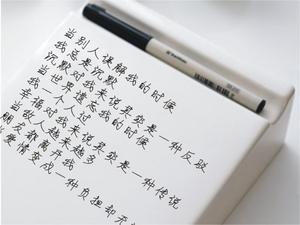 当别人误解我的时候
我总是沉默
沉默对我来说其实是一种反驳
当世界遗忘我的时候
我一个人过
幸福对我来说其实是一种传说
当敌人越来越多
朋友都离开我
爱情变成一种负担却无